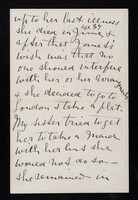 up to her last illness
she died in June
after that James's
wish was that no
one should interfere
with her or her
& she decided to go to
London & take a flat.
My sister tried to get
her to take a
with her but she
would not do so —
she remained in